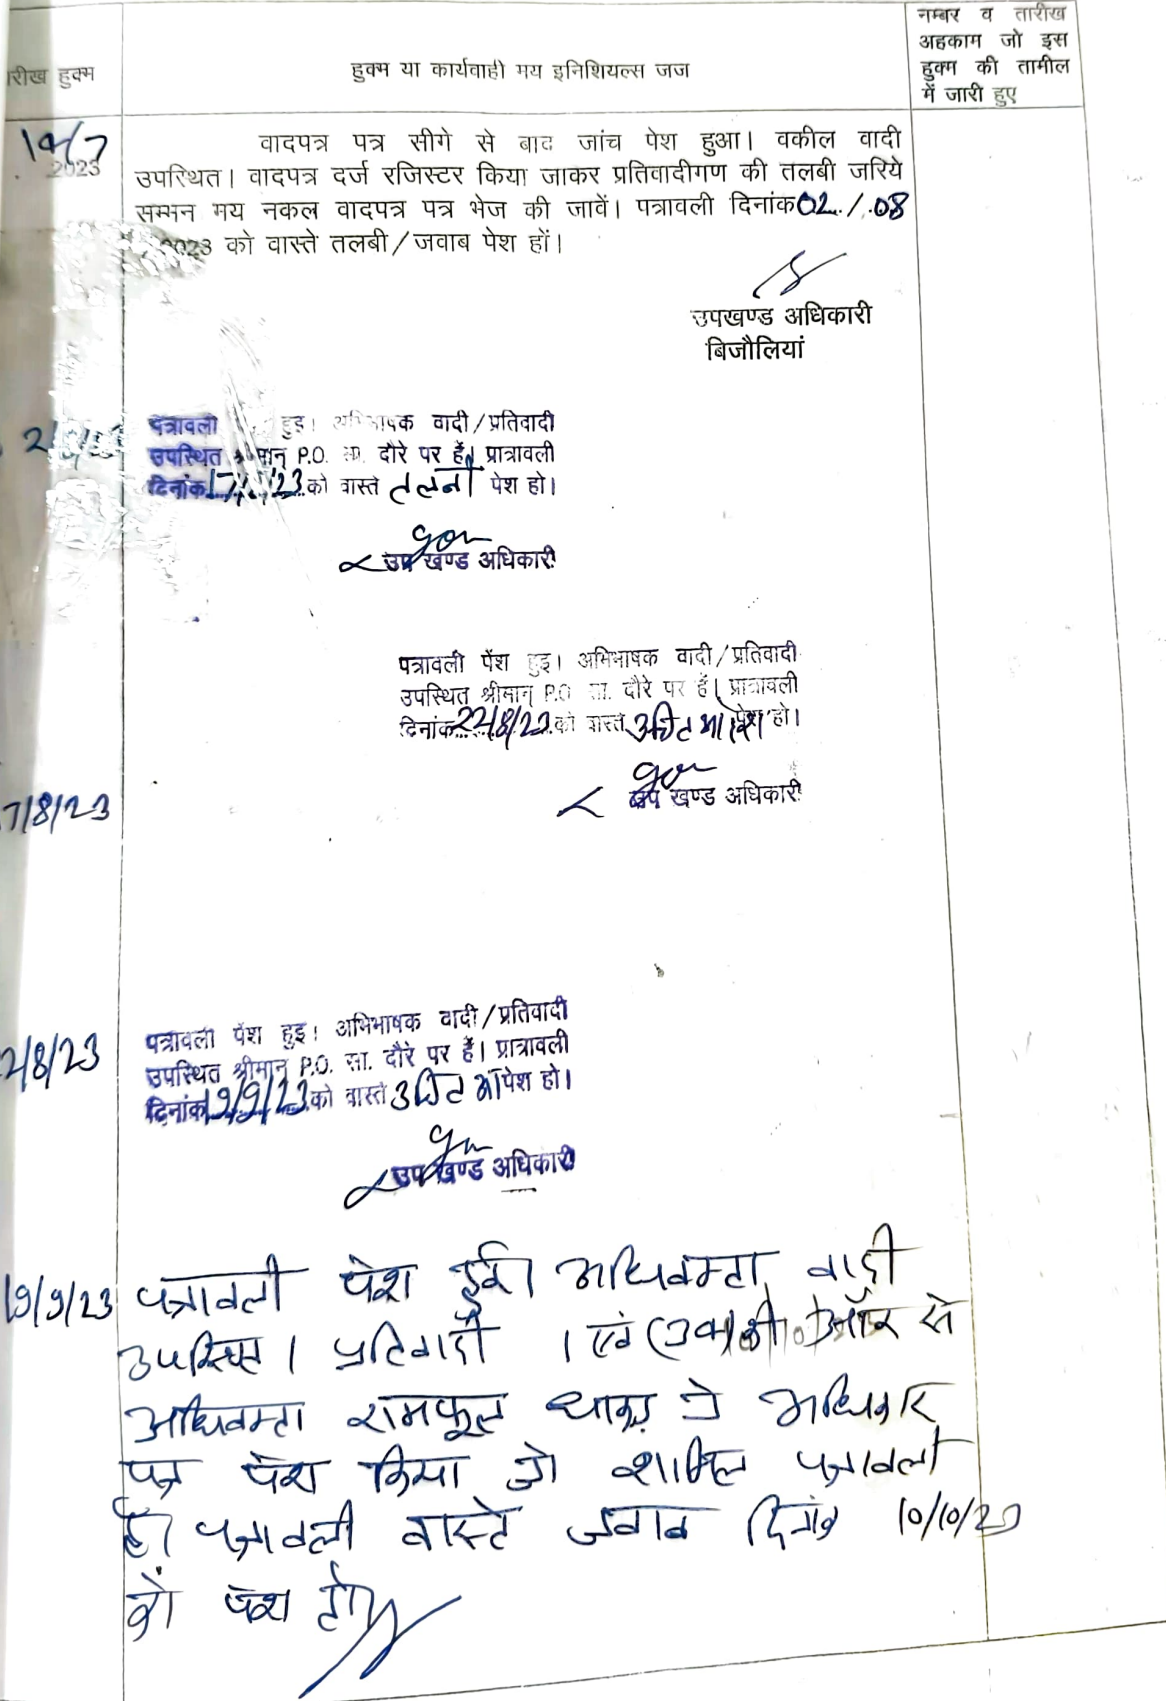 नम्बर व तारीख
अहकाम जो इस
हुक्म की तामील
में जारी हुए
रीख हुक्म
हुक्म या कार्यवाही मय इनिशियल्स जज
2023
वादपत्र पत्र सीगे से बाद जांच पेश हुआ। वकील वादी
उपस्थित। वादपत्र दर्ज रजिस्टर किया जाकर प्रतिवादीगण की तलबी जरिये
सम्मन मय नकल वादपत्र पत्र भेज की जावें। पत्रावली दिनांक 02/08
2023 को वास्ते तलबी/जवाब पेश हों।
उपखण्ड अधिकारी
बिजौलियां
पत्रावली हुइ। अभिभाषक वादी/प्रतिवादी
उपस्थित श्रीमान् P.O. सा. दौरे पर हैं। प्रात्रावली
दिनांक को वास्ते पेश हो।
उप खण्ड अधिकारी
पत्रावली पेंश हुइ। अभिभाषक वादी/प्रतिवादी
उपस्थित श्रीमान् P.O सा. दौरे पर हैं। प्रात्रावली
दिनांक 22/8/23 को वास्ते पेश हो।
उप खण्ड अधिकारी
7/8/23
2/8/23
पत्रावली पेंश हुइ। अभिभाषक वादी/प्रतिवादी
उपस्थित श्रीमान् P.O. सा. दौरे पर हैं। प्रात्रावली
दिनांक 19/9/23 को वास्ते पेश हो।
उप खण्ड अधिकारी
19/9/23
पत्रावली पेश हुई। अधिवक्ता वादी
उपस्थित। प्रतिवादी 1 एवं की ओर से
अधिवक्ता रामफूल धाकड़ ने अधिकार
पत्र पेश किया जो शामिल पत्रावली
है। पत्रावली वास्ते जवाब दिनांक 10/10/23
को पेश हो।